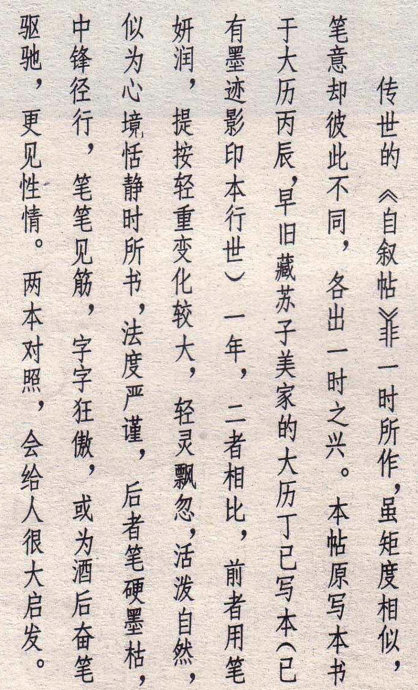 传世的《自叙帖》非一时所作，虽矩度相似，
笔意却彼此不同，各出一时之兴。本帖原写本书
于大历丙辰，早旧藏苏子美家的大历丁已写本（已
有墨迹影印本行世）一年，二者相比，前者用笔
妍润，提按轻重变化较大，轻灵飘忽，活泼自然，
似为心境恬静时所书，法度严谨，后者笔硬墨枯，
中锋径行，笔笔见筋，字字狂傲，或为酒后奋笔
驱驰，更见性情。两本对照，会给人很大启发。